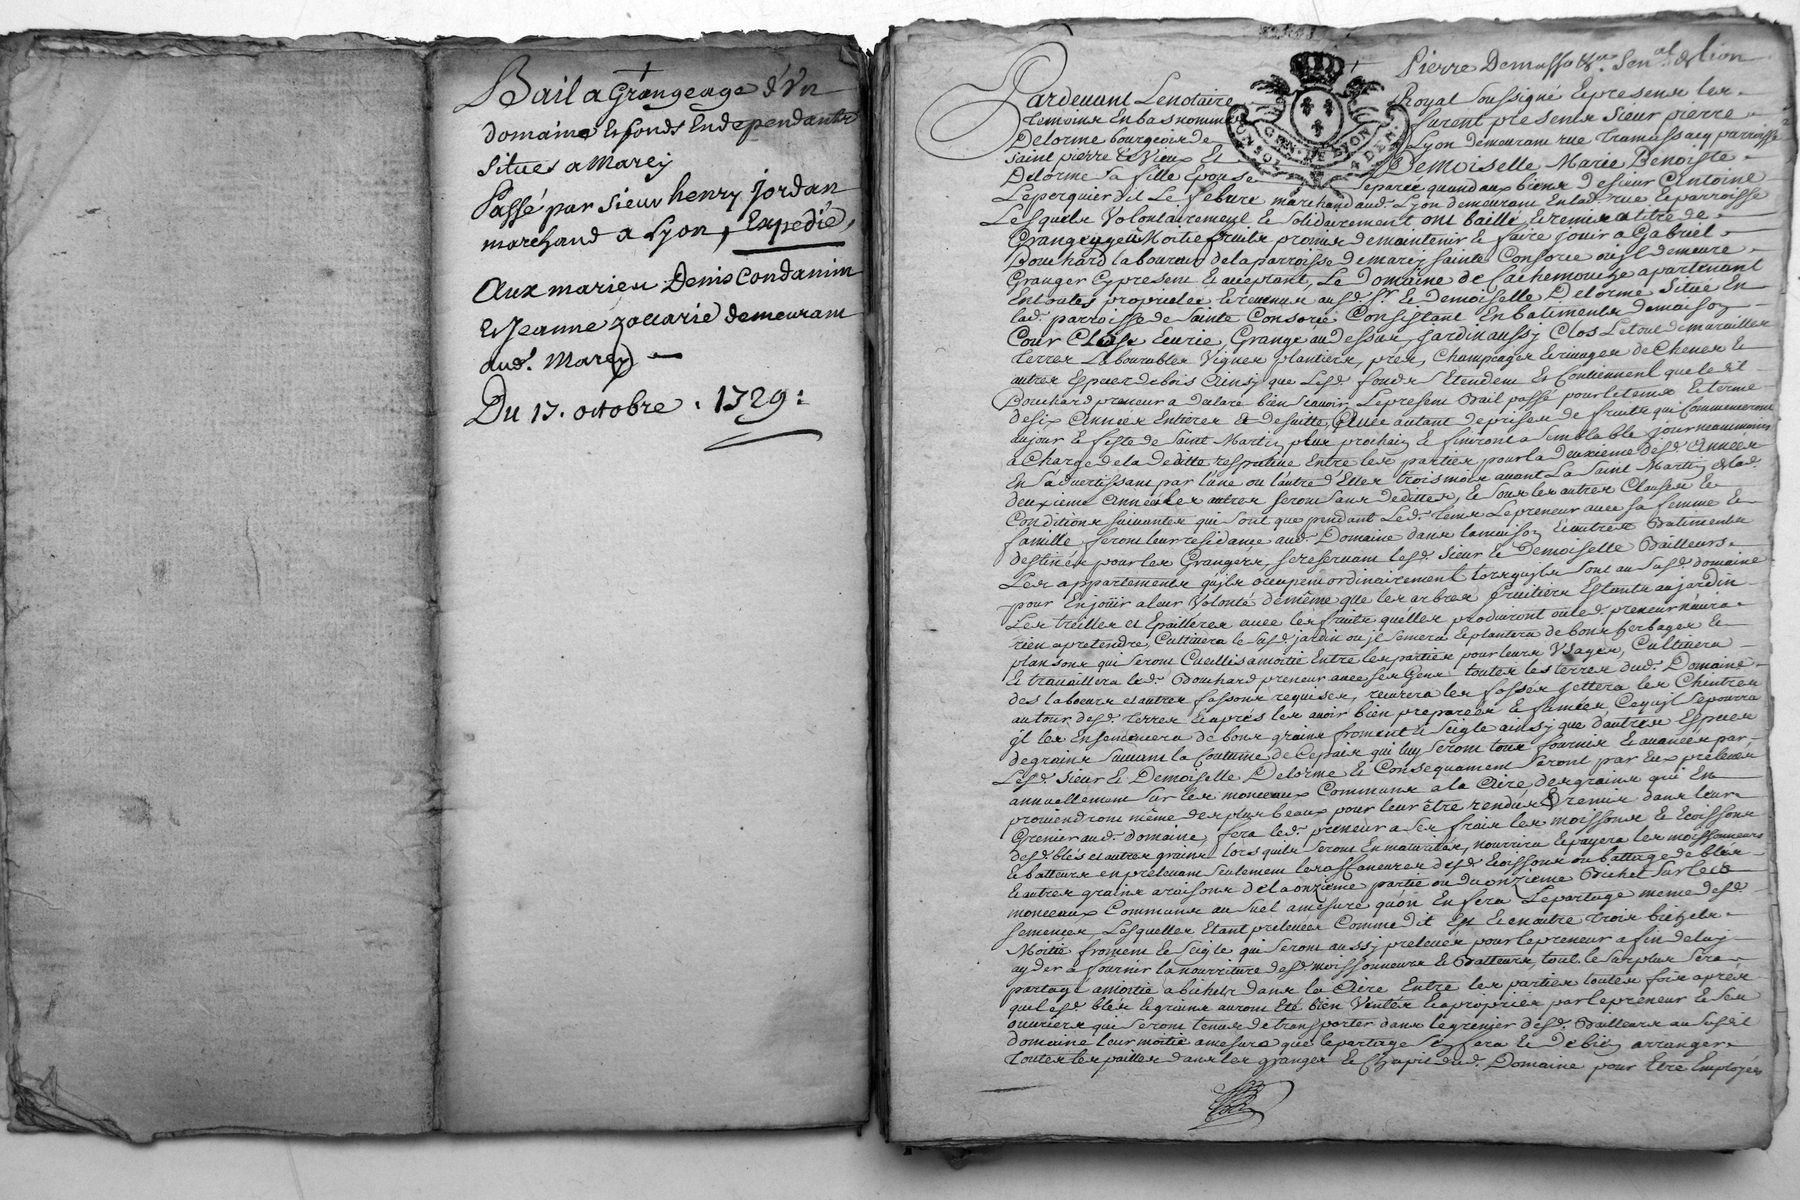 Bail a Grangeage d'Vn
domaine & fonds Endependants
situés a Marcy
Passé par sieur henry jordan
marchand a Lyon, Expedié,
Aux mariés Denis Condamin
& Jeanne zaccarie demeurant
aud. Marcy
Du 17. octobre . 1729 :
Pierre Demasso &a. Sen.al de Lion
Pardevant Lenotaire Royal soussigné & presens les
temoins Enbas nommés furent presens sieur pierre
Delorme bourgeois de Lyon demeurant rue tramassacq parroisse
saint pierre le Vieux Et Demoiselle Marie Benoiste
Delorme sa fille Epouse separée quand aux biens de sieur Antoine
Leperquier dit Le febure marchand aud. Lyon demeurant Enlad. rue & parroisse
Lesquels Volontairement & solidairement ont baillé & remis a titre de
Grangeage a Moitié fruits promis de maintenir & faire jouir a Gabriel
Bouchard laboureur de la parroisse de marcy sainte Consorce ou jl demeure
Granger Cy present & acceptant, Le Domaine de apartenant
En toutes proprietés & revenus ausd. sr. & Demoiselle Delorme situé En
lad. parroisse de sainte Consorce Consistant En batiments de maison
Cour Close Ecurie, Grange au dessus, jardin aussy Clos Letout de murailles
terres Labourables Vignes plantiers, prés, Champages & rivages de Chenes &
autres Especes de bois Ainsy que Lesd. fonds s'Etendent & Contiennent que le d.t
Bouchard preneur a declaré bien scavoir, Le present Bail passé pour le tems & terme
de six Années Entieres & de suitte, & autant de prises de fruits qui Commenceront
au jour & feste de Saint Martin plus prochain & finiront a semblable jour neaumoins
a Charge de la deditte respective Entre les parties pour la deuxieme desd. Années
En s'advertissant par l'une ou l'autre d'Elles trois mois avant La Saint Martin de lad.
deuxieme Année Les autres seront sans deditte, & sous les autres Clauses &
Conditions suivantes qui sont que pendant Led. tems Le preneur avec sa femme &
famille feront leur residance aud. Domaine dans la maison & autres Batiments
destinés pour les Grangers, se reservant lesd. Sieur & Demoiselle Bailleurs
Les appartements qu'jls occupent ordinairement lors qu'jls sont au susd. domaine
pour En joüir a leur Volonté de même que les arbres fruitiers Estants au jardin
Les treilles et Espalliers avec les fruits quelles produiront ou led. preneur n'aura
rien a pretendre, Cultivera le susd. jardin ou jl semera & plantera de bons herbages &
plansons qui seront Cueillis a moitié Entre les parties pour leurs Vsages, Cultivera
& travaillera led. Bouchard preneur avec ses Gens toutes les terres dud. Domaine
des labours et autres fassons requises, recurera les fossés jettera les Chintres
au tour desd. terres & aprés les avoir bien preparées & fumées Ce qu'jl se pourra
jl les Ensemencera de bons grains froment & seigle ainsy que d'autres Especes
de grains suivant la Coutume de Ce pais qui luy seront tous fournis & avancés par
Lesd. sieur & Demoiselle Delorme & Consequament seront par Eux prelevés
annuellement sur les monceaux Communs a la Aire des grains qui En
proviendront même des plus beaux pour leur être rendus & remis dans leur
Grenier aud. domaine, fera led. preneur a ses frais les moissons & Ecoissons
desd. blés et autres grains lors quils seront En maturités, nourrira & payera les moissonneurs
& batteurs en prelevant seulement les affaneures desd. Ecoissons ou battage de blés
& autres grains a raisons de la onzieme partie ou du onzieme Bichet sur les
monceaux Communs au suel a mesure qu'on En fera Le partage meme desd.
semences, Lesquelles Etant prelevées Comme dit Est & en outre trois bichets
Moitié froment & seigle qui seront aussy prelevés pour le preneur afin de luy
ayder a fournir la nourriture desd. moissonneurs & Batteurs, tout le surplus sera
partagé a moitié a bichets dans la Aire Entre les parties toutes fois aprés
que lesd. blés & grains auront Eté bien Ventés & appropriés par le preneur & ses
ouvriers qui seront tenus de transporter dans le grenier desd. Bailleurs au susdit
domaine leur moitié a mesure que le partage s'en fera & de bien arranger
toutes les pailles dans les granges & Chapit dud. Domaine pour Etre Employés